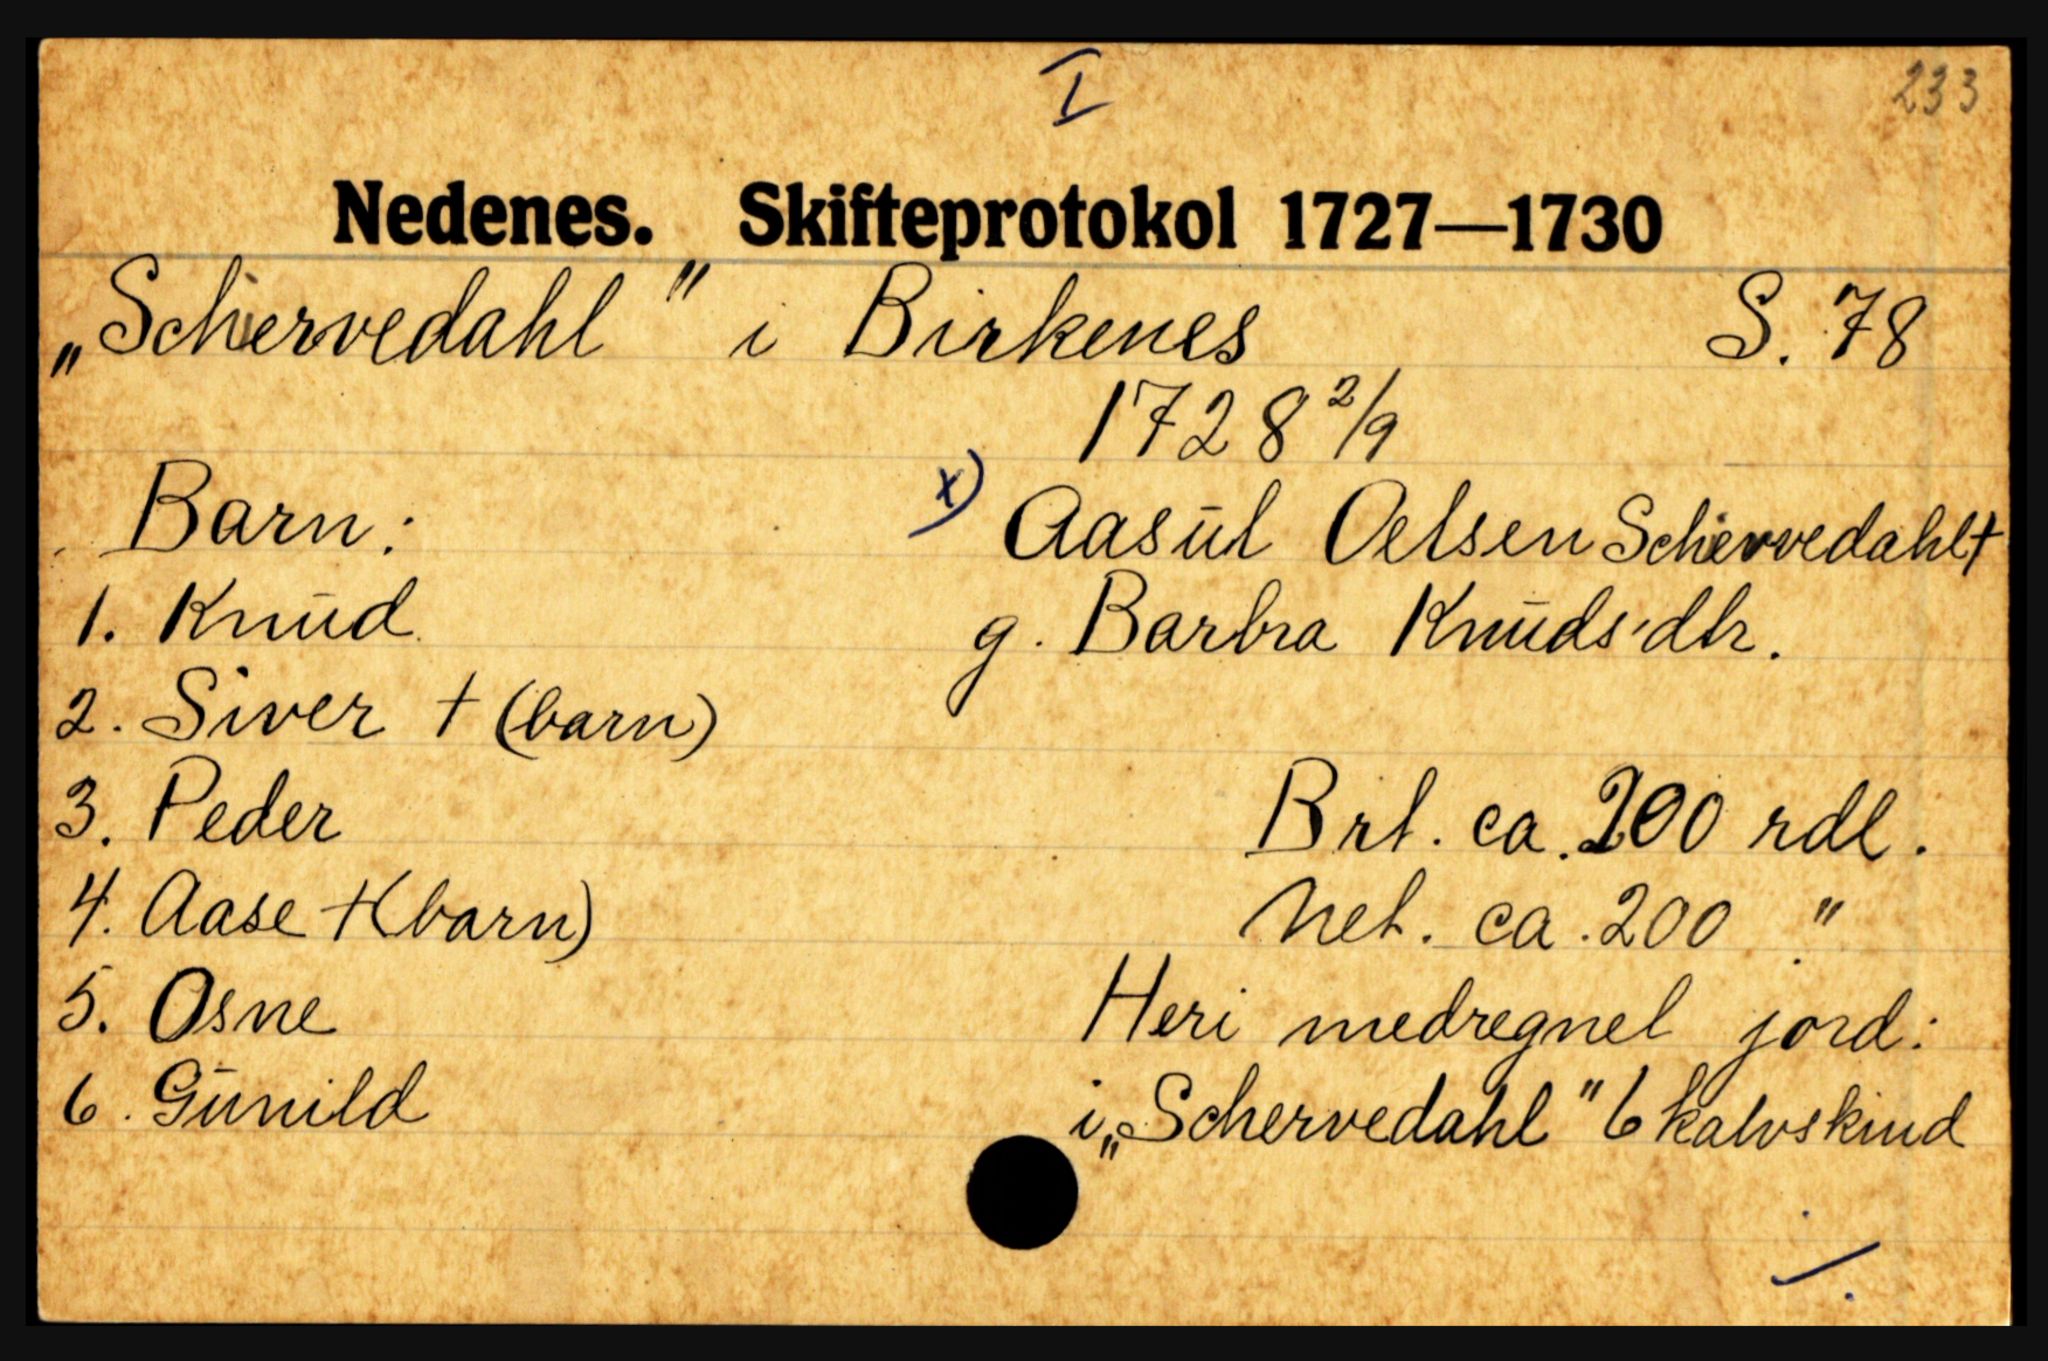 I
233
Nedenes. Skifteprotokol 1727—1730
„Schervedahl" i Birkenes S. 78
1728 2/9
Barn:
x) Aasül Oelsen Schervedahl †
1. Knūd
g. Barbra Knūds'dtr.
2. Siver † (barn)
3. Peder
Brt. ca. 200 rdl.
4. Aase † (barn)
Net. ca. 200 "
5. Osne
Heri medregnet jord:
6. Gūnild
i „Schervedahl" 6 kalvskind